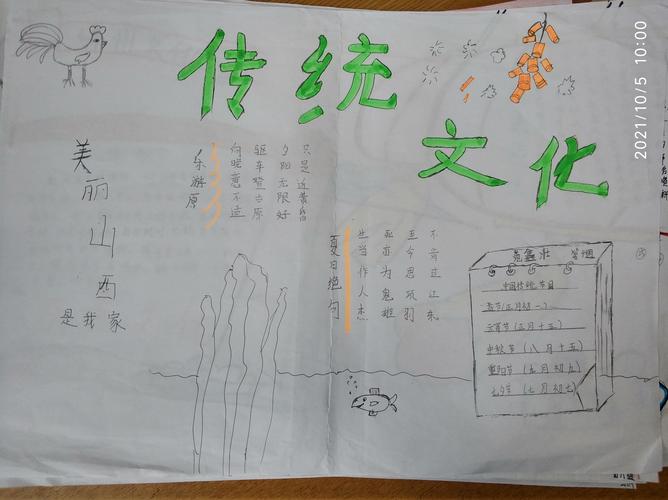 传统
文化
2021/10/5 10:00
美丽山西
是我家
乐游原
向晚意不适
驱车登古原
夕阳无限好
只是近黄昏
夏日绝句
生当作人杰
死亦为鬼雄
至今思项羽
不肯过江东
中国传统节目
春节(正月初一)
元宵节(正月十五)
中秋节(八月十五)
重阳节(九月初九)
七夕节(七月初七)